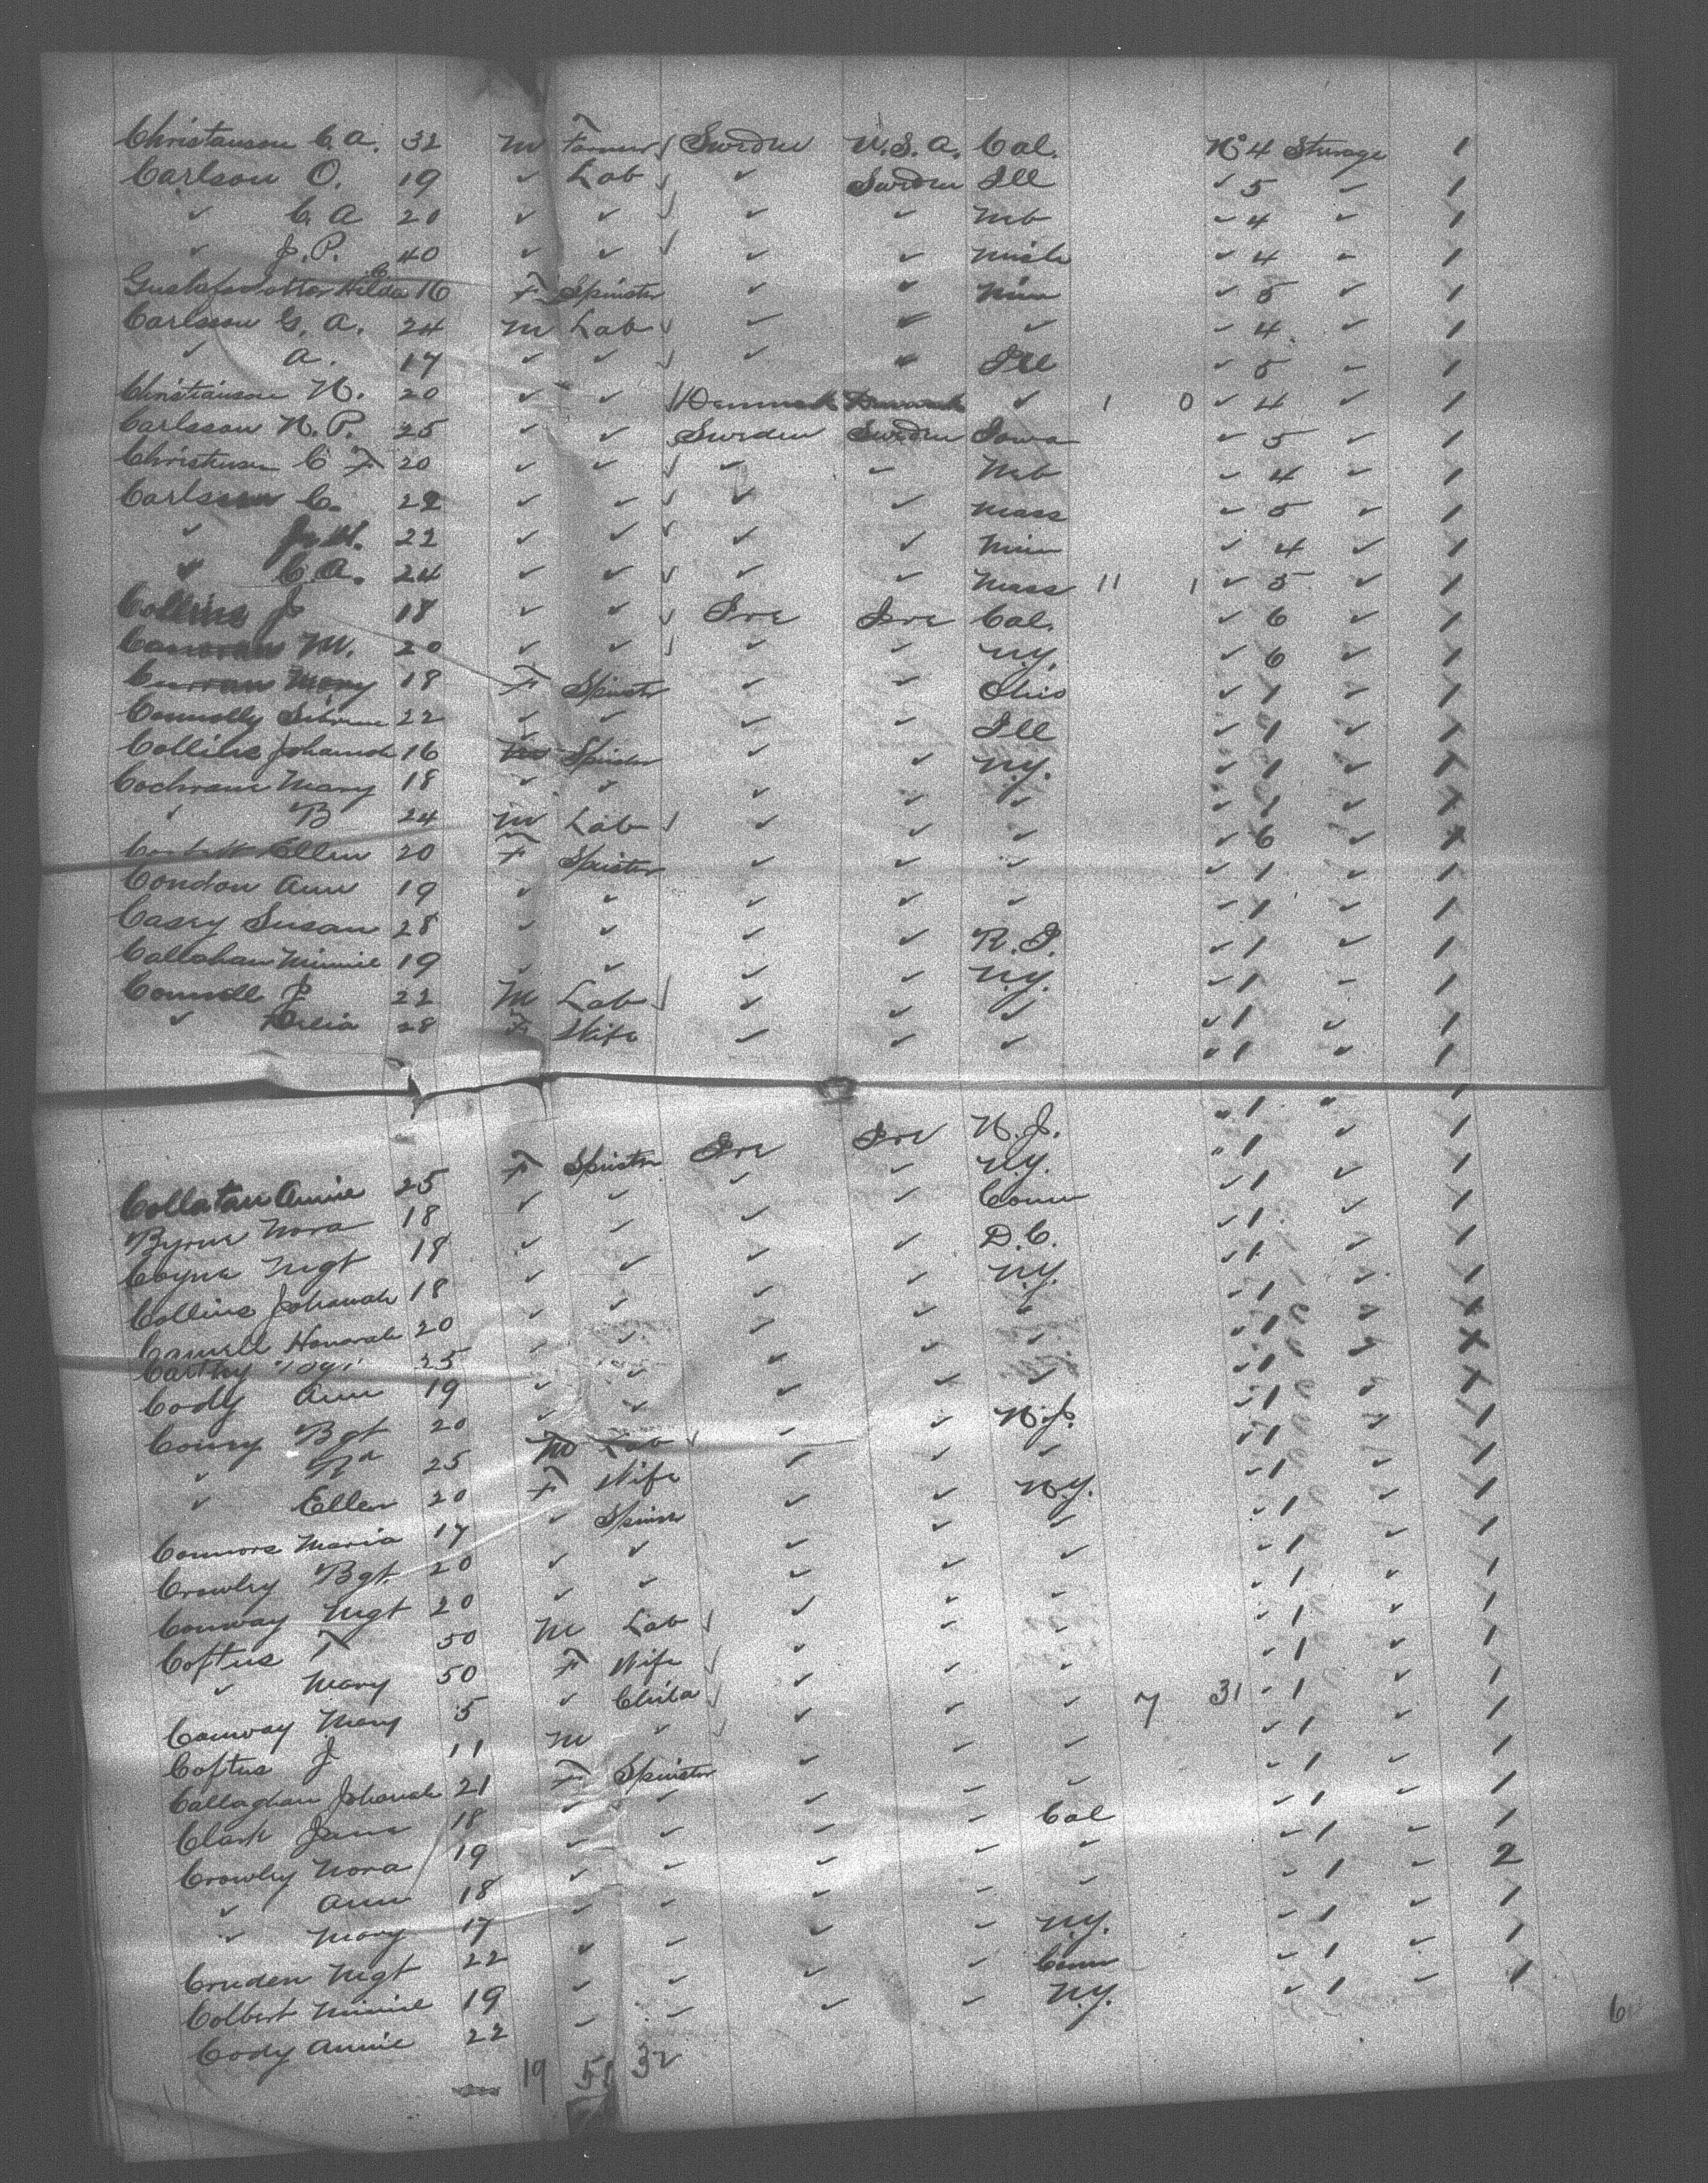 Christanson C. A. 32 M Farmer Sweden U.S.A. Cal. No 4 Steerage 1
Carlson O. 19 ✓ Lab ✓ Sweden Ill ✓ 5 ✓ 1
✓ C. A 20 ✓ ✓ ✓ ✓ Neb ✓ 4 ✓ 1
✓ J. P. 40 ✓ ✓ ✓ ✓ Mich ✓ 4 ✓ 1
Hilda C 16 F Spinster ✓ ✓ Min ✓ 5 ✓ 1
Carlsson G. A. 24 M Lab ✓ ✓ ✓ ✓ 4 ✓ 1
✓ A. 17 ✓ ✓ ✓ ✓ Ill ✓ 5 ✓ 1
Christianson N. 20 ✓ ✓ Denmark Denmark ✓ 1 0 ✓ 4 ✓ 1
Carlsson N. P. 25 ✓ ✓ Sweden Sweden Iowa ✓ 5 ✓ 1
Christenson C F 20 ✓ ✓ ✓ ✓ Neb ✓ 4 ✓ 1
Carlsson C. 22 ✓ ✓ ✓ ✓ Mass ✓ 5 ✓ 1
✓ 22 ✓ ✓ ✓ ✓ Min ✓ 4 ✓ 1
✓ C. A. 24 ✓ ✓ ✓ ✓ Mass 11 1 ✓ 5 ✓ 1
Collins J 18 ✓ ✓ Ire Ire Cal. ✓ 6 ✓ 1
M. 20 ✓ ✓ ✓ ✓ N.Y. ✓ 6 ✓ 1
Curran Mary 18 F Spinster ✓ ✓ Ohio ✓ 1 ✓ 1
Connolly 22 ✓ ✓ ✓ ✓ Ill ✓ 1 ✓ 1
Collins Johannah 16 Spinster ✓ ✓ N.Y. ✓ 1 ✓ 1
Cochrane Mary 18 ✓ ✓ ✓ ✓ ✓ ✓ 1 ✓ 1
✓ B 24 M Lab ✓ ✓ ✓ ✓ 6 ✓ 1
Ellen 20 F Spinster ✓ ✓ ✓ ✓ 1 ✓ 1
Condon Ann 19 ✓ ✓ ✓ ✓ ✓ ✓ 1 ✓ 1
Casey Susan 28 ✓ ✓ ✓ ✓ R. I. ✓ 1 ✓ 1
Callahan Minnie 19 ✓ ✓ ✓ ✓ N.Y. ✓ 1 1
Connell J 22 M Lab ✓ ✓ ✓ ✓ 1 ✓ 1
✓ Delia 28 F Wife ✓ ✓ ✓ ✓ 1 ✓ 1
Collatan Annie 25 F Spinster Ire Ire N. J. ✓ 1 ✓ 1
Byrne Nora 18 ✓ ✓ ✓ ✓ N.Y. ✓ 1 ✓ 1
Coyne Mgt 18 ✓ ✓ ✓ ✓ Conn ✓ 1 ✓ 1
Collins Johanah 18 ✓ ✓ ✓ ✓ D. C. ✓ 1 ✓ 1
Connell Honorah 20 ✓ ✓ ✓ ✓ N.Y. ✓ 1 ✓ 1
Carthy 25 ✓ ✓ ✓ ✓ ✓ ✓ 1 ✓ 1
Cody Ann 19 ✓ ✓ ✓ ✓ ✓ ✓ 1 ✓ 1
Conry Bgt 20 ✓ ✓ ✓ ✓ ✓ ✓ 1 ✓ 1
✓ Rd 25 M Lab ✓ ✓ N. J. ✓ 1 ✓ 1
✓ Ellen 20 F Wife ✓ ✓ ✓ ✓ 1 ✓ 1
Connors Maria 17 ✓ Spinster ✓ ✓ N.Y. ✓ 1 ✓ 1
Crowley Bgt 20 ✓ ✓ ✓ ✓ ✓ ✓ 1 ✓ 1
Conway Mgt 20 ✓ ✓ ✓ ✓ ✓ ✓ 1 ✓ 1
Coftus T 50 M Lab ✓ ✓ ✓ ✓ 1 ✓ 1
✓ Mary 50 F Wife ✓ ✓ ✓ ✓ 1 ✓ 1
Conway Mary 5 ✓ Child ✓ ✓ ✓ 7 31 ✓ 1 ✓ 1
Coftus J 11 M ✓ ✓ ✓ ✓ ✓ 1 ✓ 1
Callaghan Johanah 21 F Spinster ✓ ✓ ✓ ✓ 1 ✓ 1
Clark Jane 18 ✓ ✓ ✓ ✓ Cal ✓ 1 ✓ 1
Crowley Nora 19 ✓ ✓ ✓ ✓ ✓ ✓ 1 ✓ 1
✓ Ann 18 ✓ ✓ ✓ ✓ ✓ ✓ 1 ✓ 2
✓ Mary 17 ✓ ✓ ✓ ✓ ✓ ✓ 1 ✓ 1
Cruden Mgt 22 ✓ ✓ ✓ ✓ N.Y. ✓ 1 ✓ 1
Colbert Minnie 19 ✓ ✓ ✓ ✓ Conn ✓ 1 ✓ 1
Cody Annie 22 ✓ ✓ ✓ ✓ N.Y.
19 51 32
6